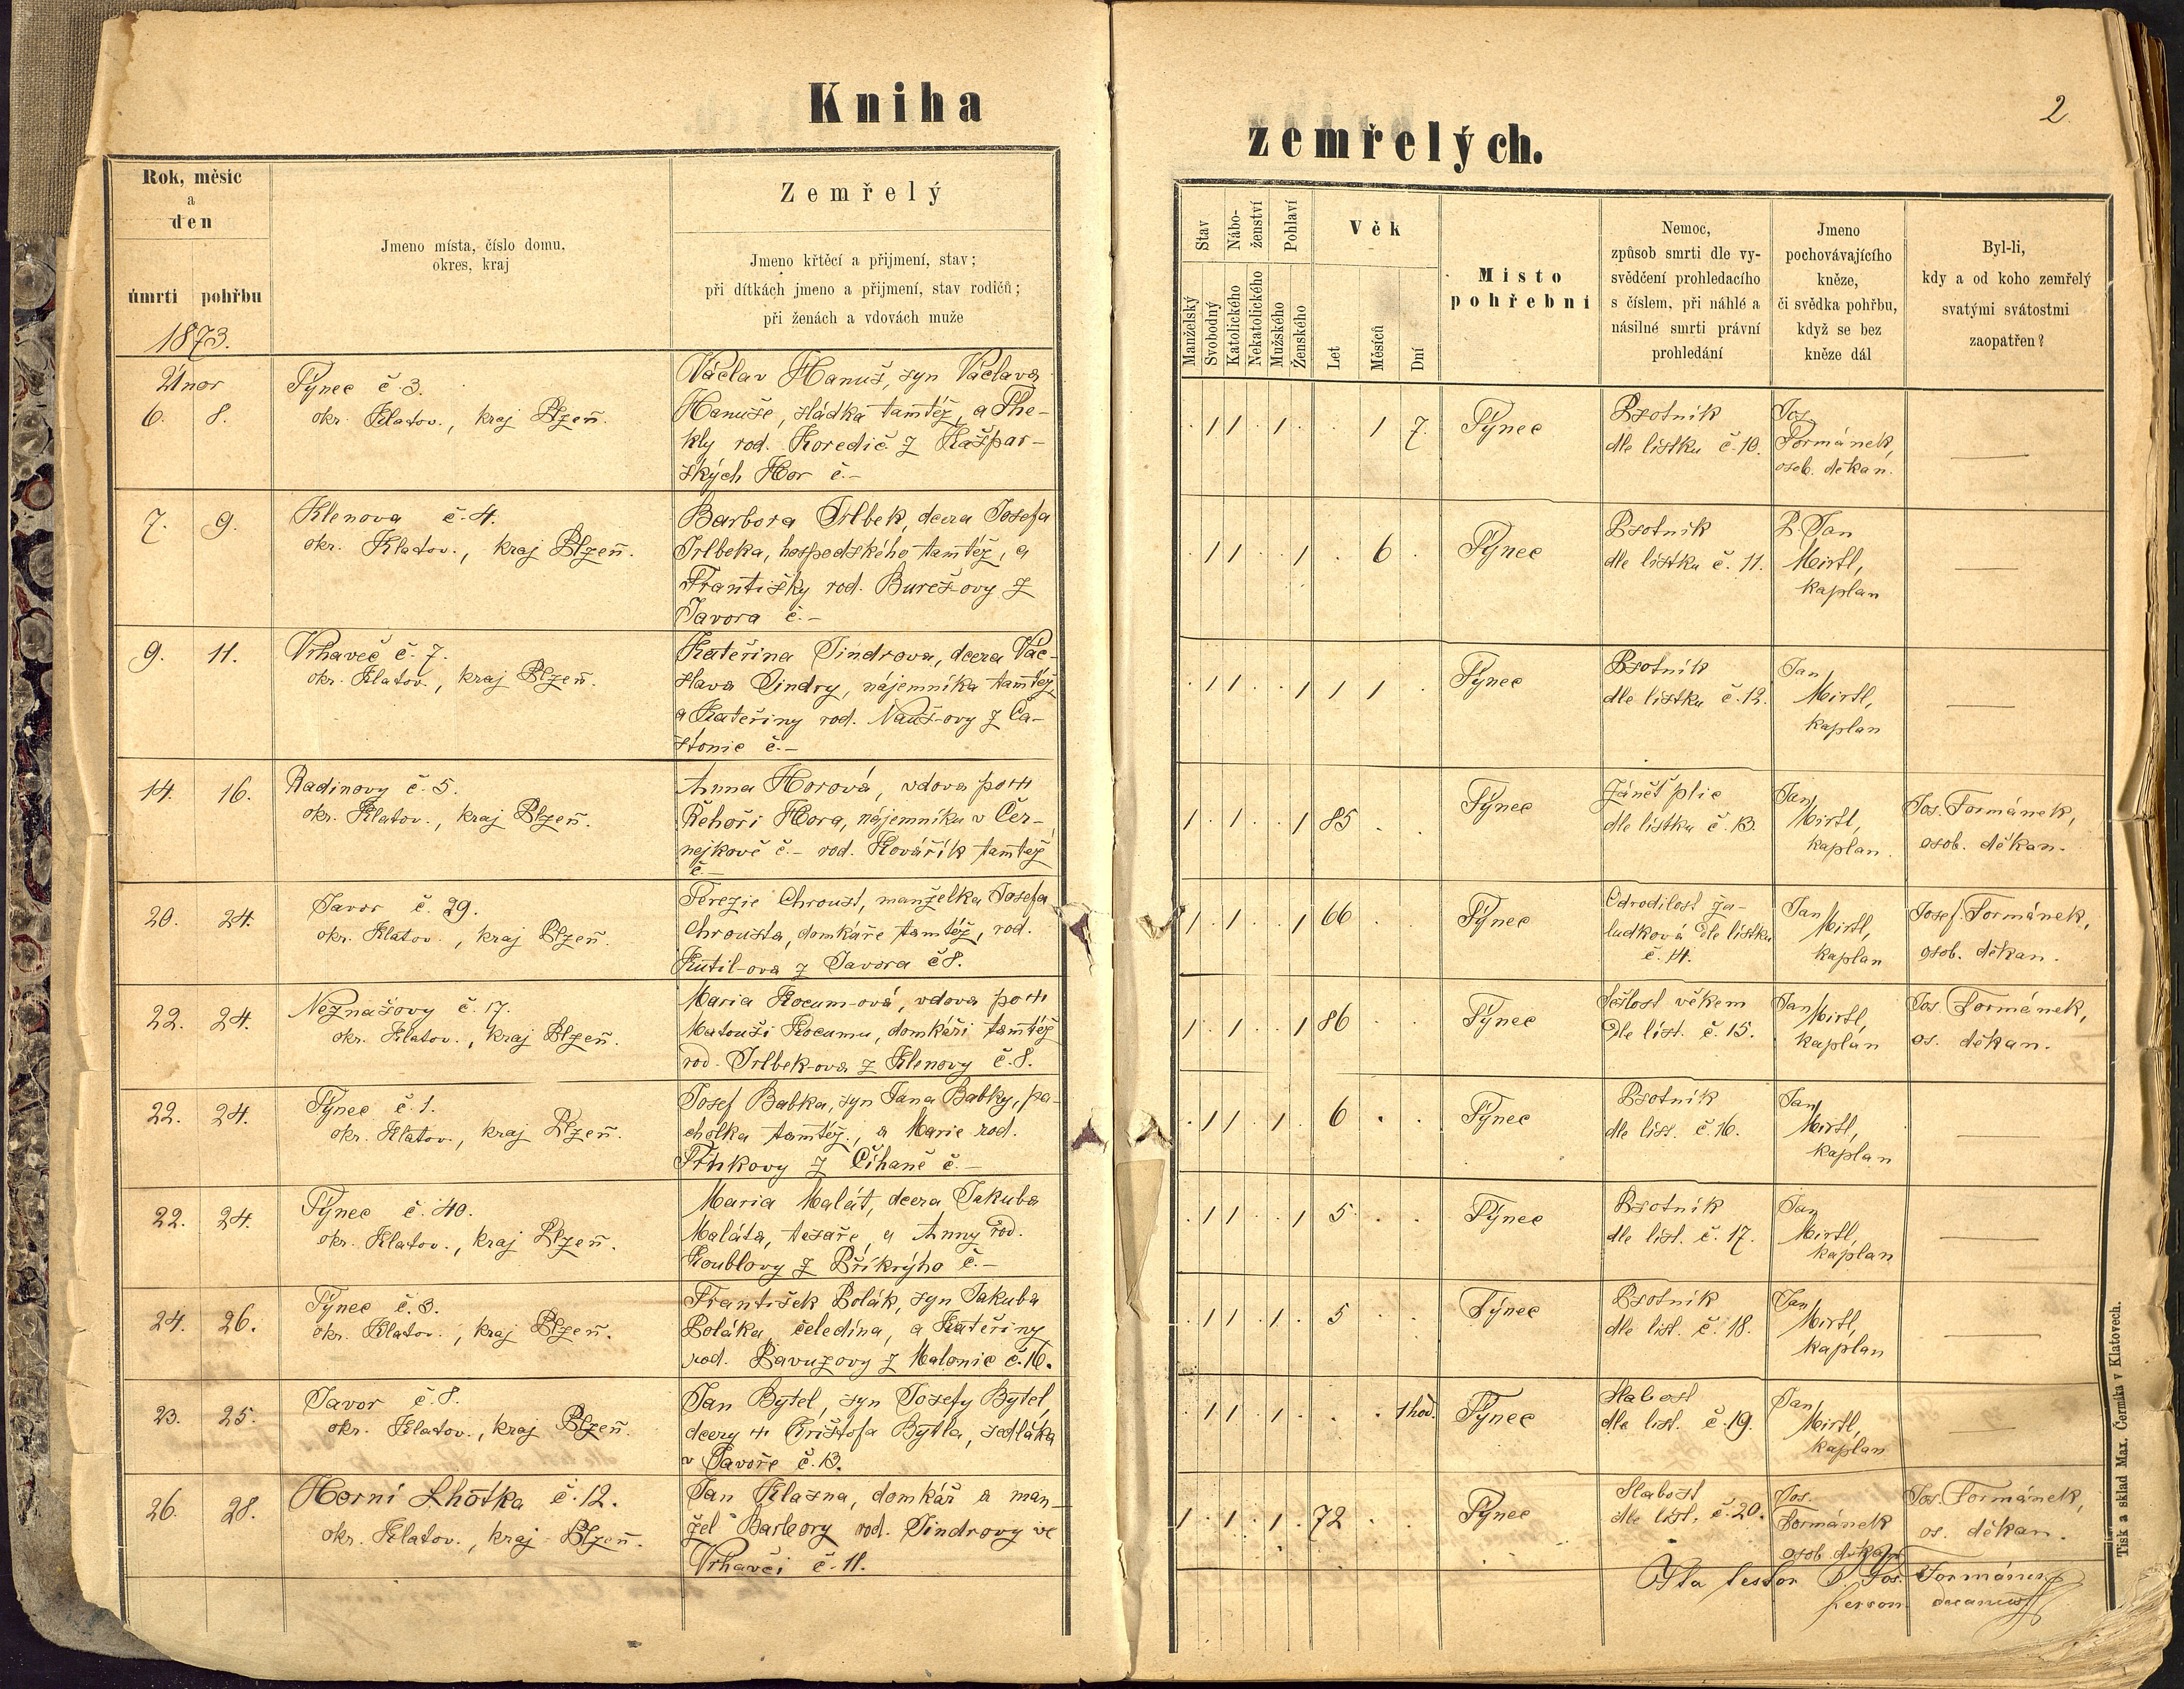 Kniha
zemřelých.
2
Rok, měsíc
a
den
úmrtí pohřbu
1873.
Jmeno místa, číslo domu,
okres, kraj
Zemřelý
Jmeno křtěcí a přijmení, stav;
při dítkách jmeno a přijmení, stav rodičů;
při ženách a vdovách muže
Stav
Nábo-
ženství
Pohlaví
Věk
Manželský
Svobodný
Katolického
Nekatolického
Mužského
Ženského
Let
Měsíců
Dní
Místo
pohřební
Nemoc,
způsob smrti dle vy-
svědčení prohledacího
s číslem, při náhlé a
násilné smrti právní
prohledání
Jmeno
pochovávajícího
kněze,
či svědka pohřbu,
když se bez
kněze dál
Byl-li,
kdy a od koho zemřelý
svatými svátostmi
zaopatřen?
Únor
6. 8.
Týnec č 3.
okr. Klatov., kraj Plzeň.
Václav Hanuš, syn Václava
Hanuše, sládka tamtéž, a The-
kly rod. Koredič z Kašpar-
ských Hor č.-
. 1 1 . 1 . . 1 7.
Týnec
Psotník
dle lístku č. 10.
Jos.
Formánek,
osob. děkan.
—
7. 9.
Klenova č. 4.
okr. Klatov., kraj Plzeň.
Barbora Irlbek, dcera Josefa
Irlbeka, hospodského tamtéž, a
Františky rod. Bureš-ovy z
Javora č.-
. 1 1 . . 1 . 6 .
Týnec
Psotník
dle lístku č. 11.
P. Jan
Meirtl,
kaplan
—
9. 11.
Vrhaveč č. 7.
okr. Klatov., kraj Plzeň.
Kateřina Jindrova, dcera Vác-
slava Jindry, nájemníka tamtéž,
a Kateřiny rod. Nauš-ovy z Ča-
stonic č.-
. 1 1 . . 1 1 1 .
Týnec
Psotník
dle lístku č. 12.
Jan
Mirtl,
kaplan
—
14. 16.
Radinovy č. 5.
okr. Klatov., kraj Plzeň.
Anna Horová, vdova po ++
Řehoři Hora, nájemníku v Čer-
nejkově č.- rod. Kovářík tamtéž
č.-
1 . 1 . . 1 85 . .
Týnec
Zánět plic
dle lístku č. 13.
Jan
Mirtl,
kaplan.
Jos. Formánek,
osob. děkan.
20. 24.
Javor č. 29.
okr. Klatov., kraj Plzeň.
Terezie Chroust, manželka Josefa
Chrousta, domkáře tamtéž, rod.
Kutil-ova z Javora č 8.
1 . 1 . . 1 66 . .
Týnec
Odrodilost ža-
ludková dle lístku
č. 14.
Jan
Mirtl,
kaplan
Josef Formánek,
osob. děkan.
22. 24.
Neznašovy č. 17.
okr. Klatov., kraj Plzeň.
Maria Kocum-ová, vdova po ++
Matouši Kocumu, domkáři tamtéž
rod. Irlbek-ova z Klenovy č. 8.
1 . 1 . . 1 86 . .
Týnec
Sešlost věkem
dle list. č. 15.
Jan
Mirtl,
kaplán
Jos. Formánek,
os. děkan.
22. 24.
Týnec č. 1.
okr. Klatov., kraj Plzeň.
Josef Babka, syn Jana Babky, pa-
cholka tamtéž, a Marie rod.
z Číhaně č.-
. 1 1 . 1 . 6 . .
Týnec
Psotník
dle list. č. 16.
Jan
Mirtl,
kaplan
—
22. 24.
Týnec č. 40.
okr. Klatov., kraj Plzeň.
Maria Malát, dcera Jakuba
Maláta, tesaře, a Anny rod.
Koublovy z Příkrýho č.-
. 1 1 . . 1 5 . .
Týnec
Psotník
dle list. č. 17.
Jan
Mirtl,
kaplan
—
24. 26.
Týnec č. 3.
okr. Klatov., kraj Plzeň.
František Polák, syn Jakuba
Poláka, čeledína, a Kateřiny
rod. Pavuzovy z Malonic č. 16.
. 1 1 . 1 . 5 . .
Týnec
Psotník
dle list. č. 18.
Jan
Mirtl,
kaplan
—
23. 25.
Javor č. 8.
okr. Klatov., kraj Plzeň.
Jan Bytel, syn Josefy Bytel,
dcery ++ Krištofa Bytla, sedláka
v Javoře č. 13.
. 1 1 . 1 . . . 1 hod.
Týnec
Slabost
dle list. č. 19.
Jan
Mirtl,
kaplan
—
26. 28.
Horní Lhotka č. 12.
okr. Klatov., kraj Plzeň.
Jan Klasna, domkář a man-
žel Barbory rod. Jindrovy ve
Vrhavči č. 11.
1 . 1 . 1 . 72 . .
Týnec
Slabost
dle list. č. 20.
Jos.
Formánek
osob. děkan
Jos. Formánek,
os. děkan.
Ita testor P. Jos. Formánek
person. decanus
Tisk a sklad Max. Čermáka v Klatovech.